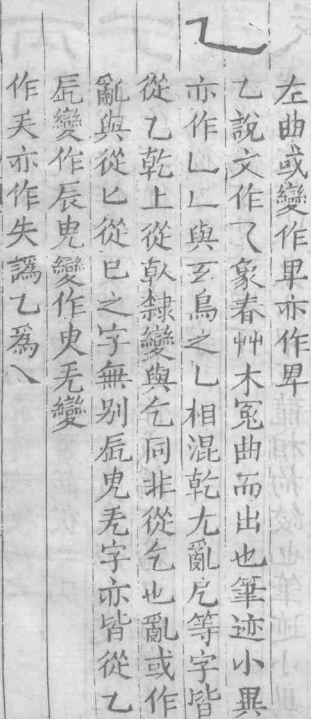 左曲或變作甲亦作畀
乙
乙說文作乀象春艸木冤曲而出也筆迹小異
亦作乚𠃊與玄鳥之乚相混乾尤亂尼等字皆
從乙乾上從倝隸變與乞同非從乞也亂或作
亂與從匕從巳之字無别辰曳无字亦皆從乙
辰變作辰曳變作曳无變
作无亦作失譌乙爲乀